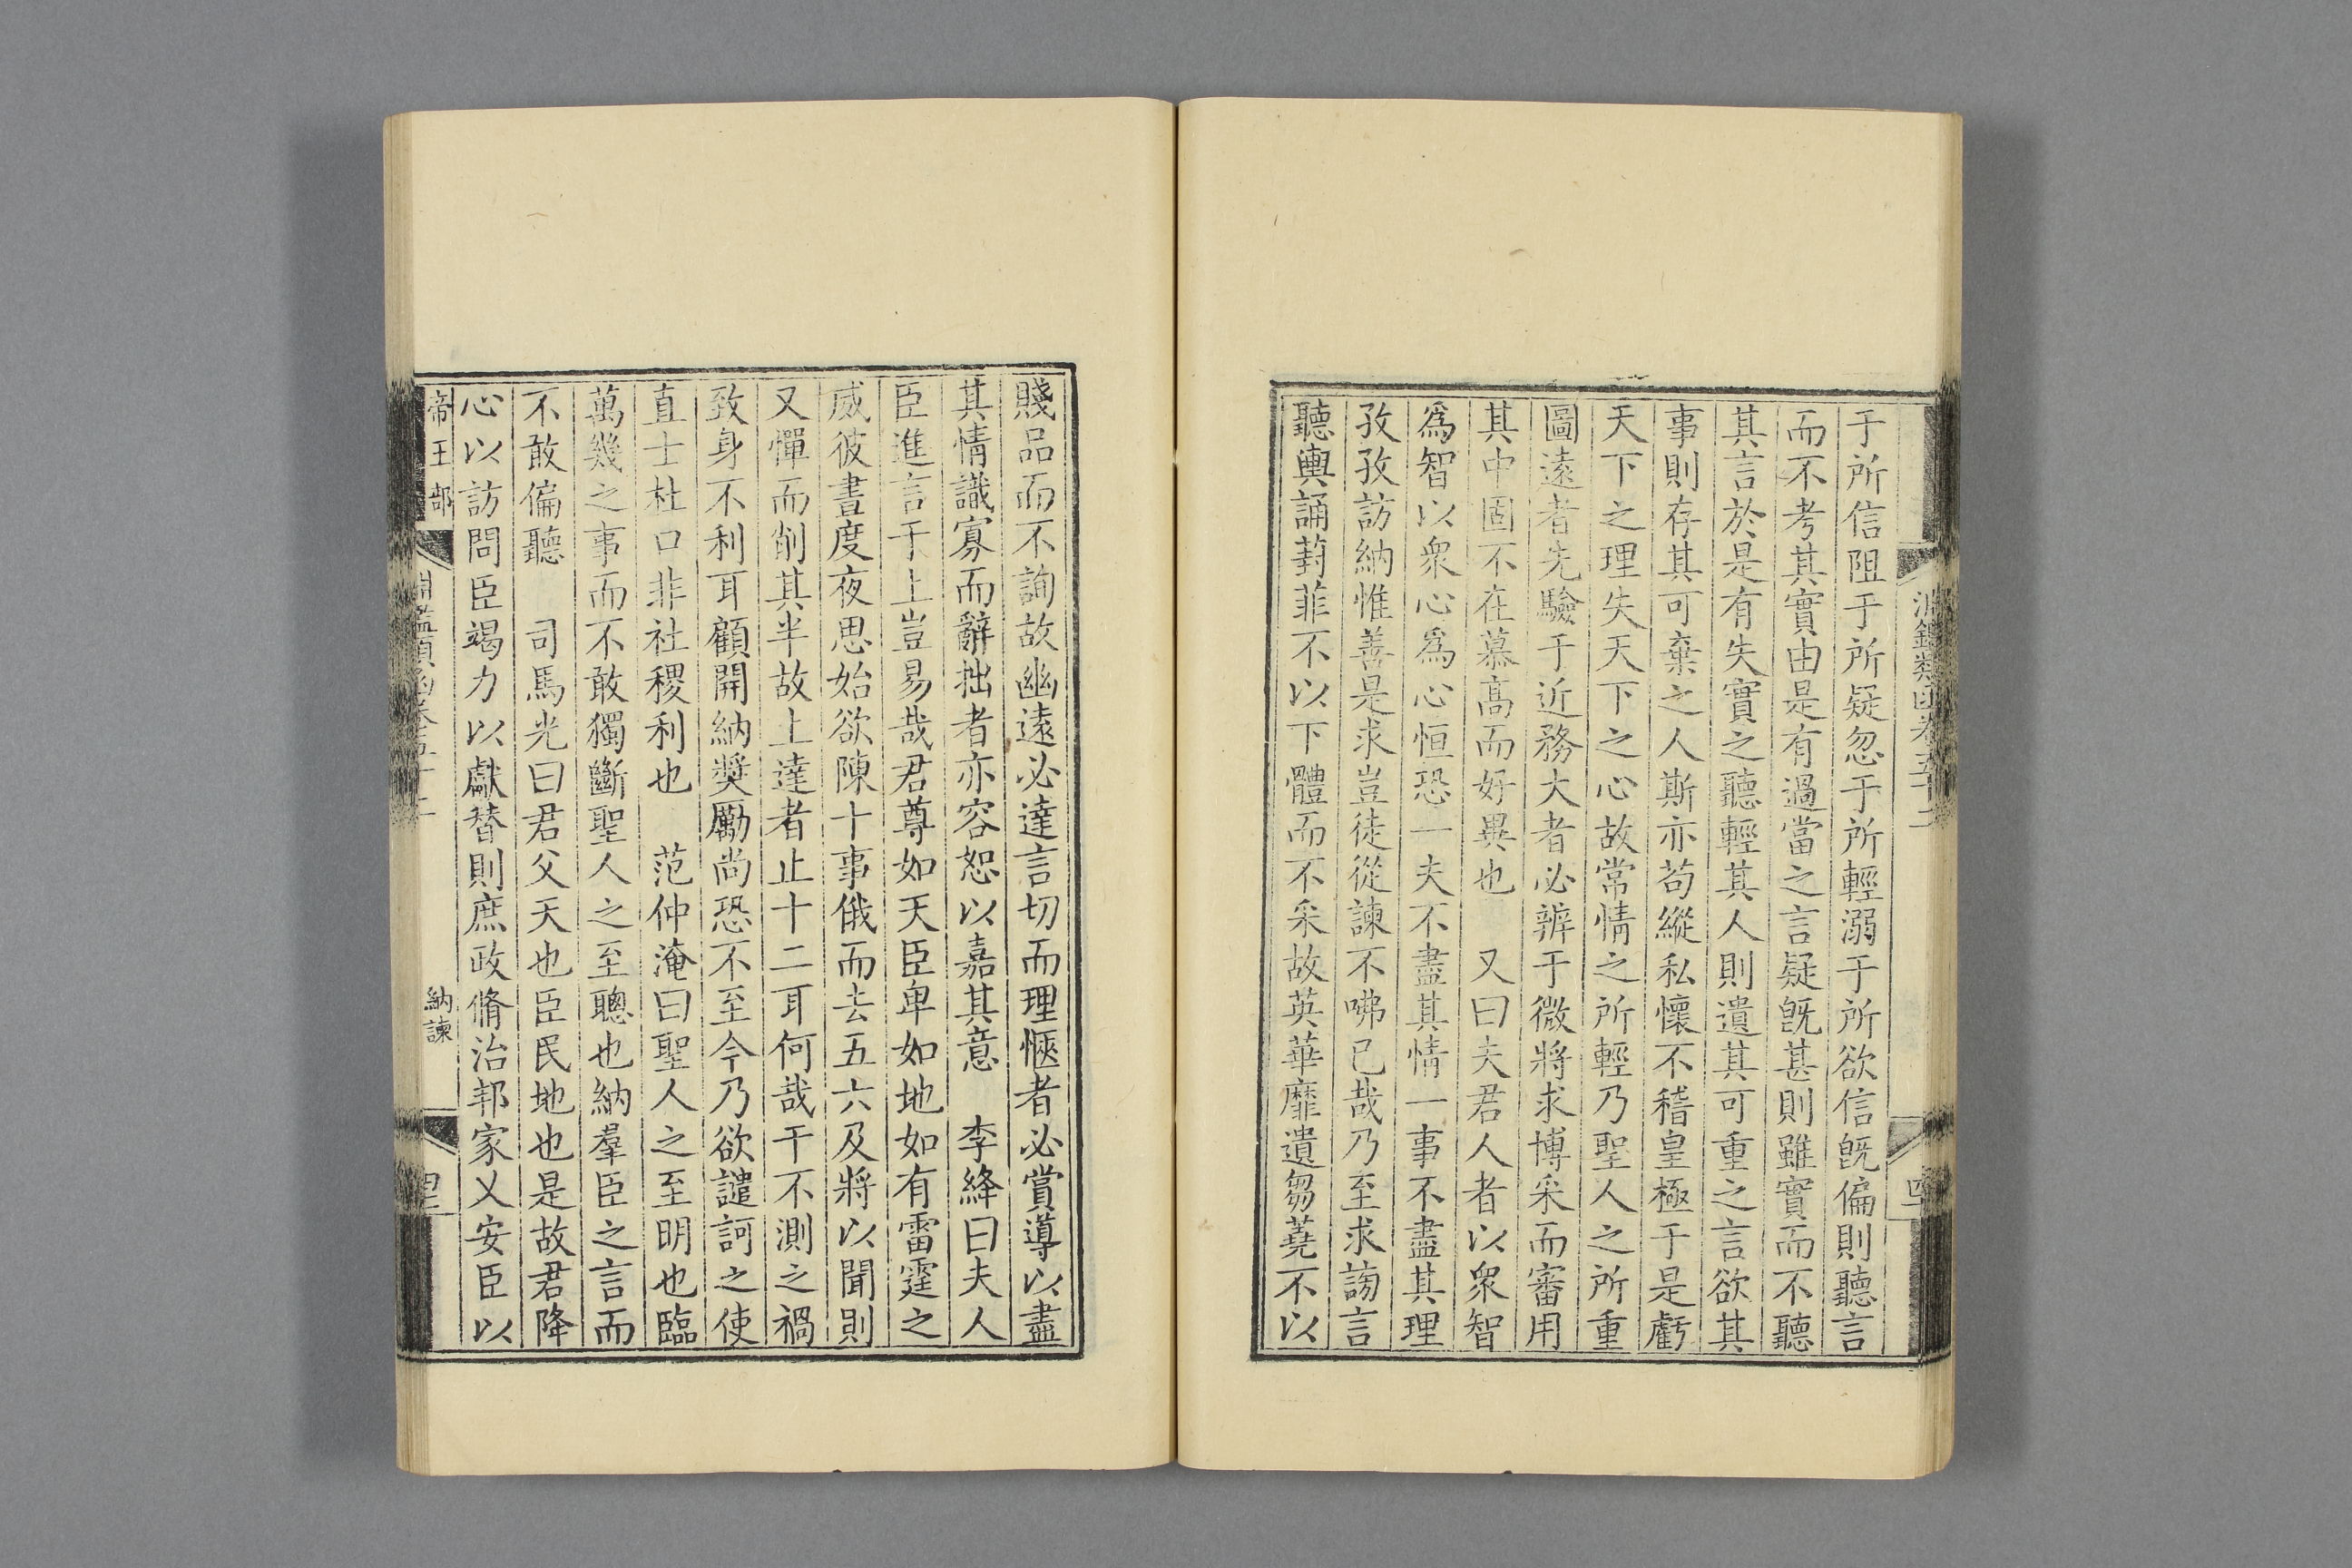 于所信阻于所疑忽于所輕溺于所欲信旣偏則聽言
而不考其實由是有過當之言疑旣甚則雖實而不聽
其言於是有失實之聽輕其人則遺其可重之言欲其
事則存其可棄之人斯亦苟縱私懷不稽皇極于是虧
天下之理失天下之心故常情之所輕乃聖人之所重
圖遠者先驗于近務大者必辨于微將求博采而審用
其中固不在慕高而好異也　又曰夫君人者以衆智
爲智以衆心爲心恒恐一夫不盡其情一事不盡其理
孜孜訪納惟善是求豈徒從諫不咈已哉乃至求謗言
聽輿誦葑菲不以下體而不采故英華靡遺芻蕘不以
賤品而不詢故幽遠必達言切而理愜者必賞導以盡
其情識寡而辭拙者亦容恕以嘉其意　李絳曰夫人
臣進言于上豈易哉君尊如天臣卑如地如有雷霆之
威彼晝度夜思始欲陳十事俄而去五六及將以聞則
又憚而削其半故上達者止十二耳何哉干不測之禍
致身不利耳顧開納奬勵尚恐不至今乃欲譴訶之使
直士杜口非社稷利也　范仲淹曰聖人之至明也臨
萬幾之事而不敢獨斷聖人之至聰也納羣臣之言而
不敢偏聽　司馬光曰君父天也臣民地也是故君降
心以訪問臣竭力以獻替則庶政脩治邦家乂安臣以
帝王部
納諫